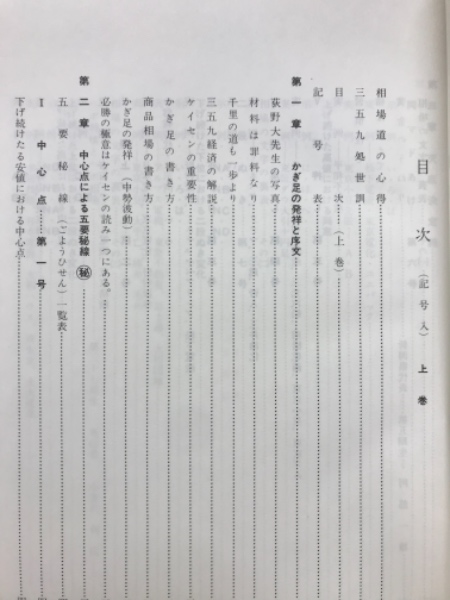 目次（記号入）上巻
相場道の心得
三五九処世訓
目次（上巻）
記号表
第一章　かぎ足の発祥と序文
荻野大先生の写真
材料は罪料なり
千里の道も一歩より
三五九経済の解説
ケイセンの重要性
かぎ足の書き方
商品相場の書き方
かぎ足の発祥（中勢波動）
必勝の極意はケイセンの読み一つにある。
第二章　中心点による五要秘線㊙
五要秘線（ごようひせん）一覧表
Ⅰ　中心点……第一号
下げ続けたる安値における中心点